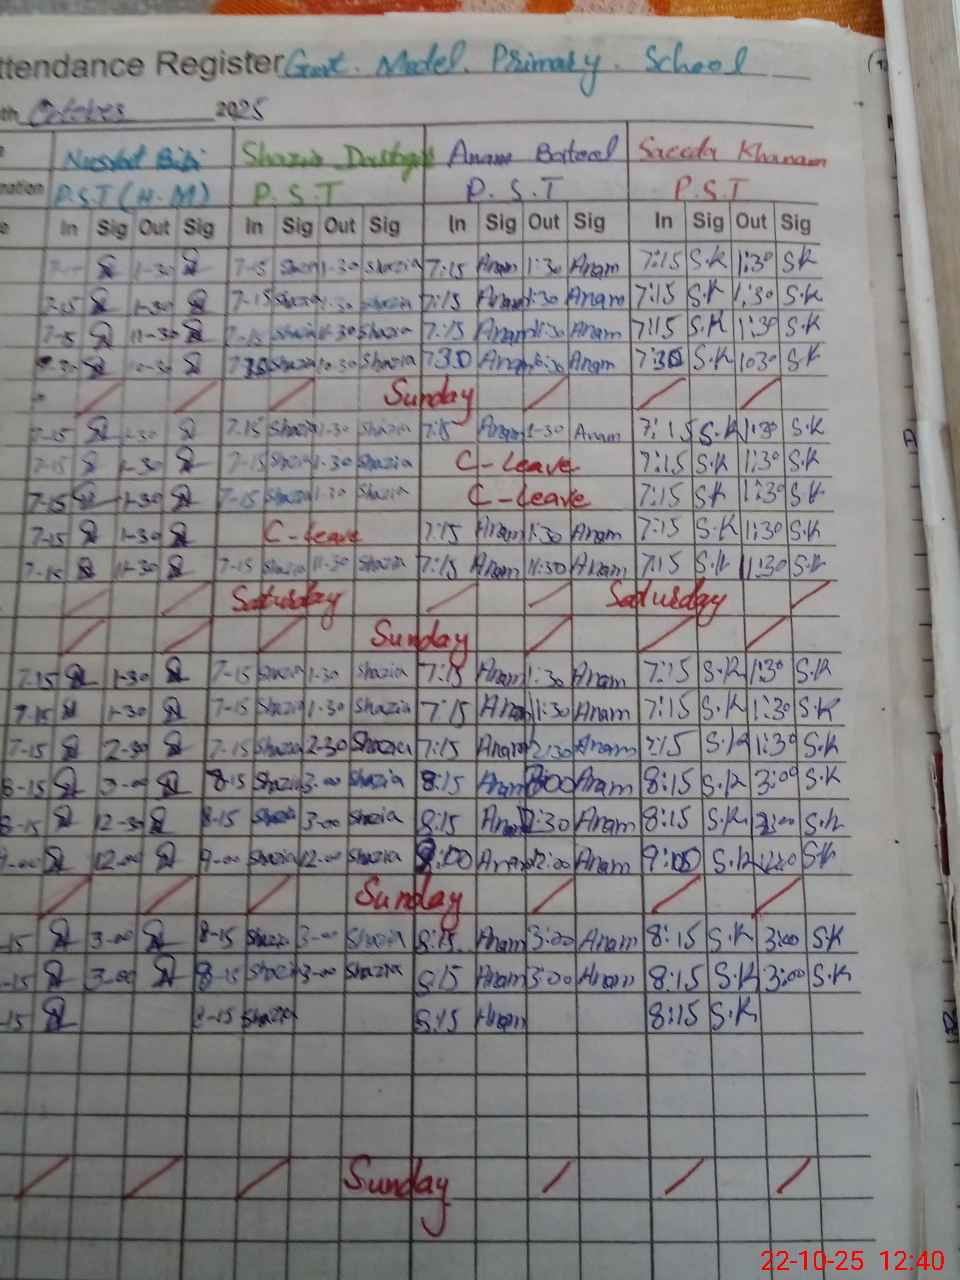 ttendance Register Govt. Model. Primary. School
th October 2025
Nusrat Bibi Shazia Dastgir Anam Batool Saeeda Khanam
nation P.S.T (H.M) P.S.T P.S.T P.S.T
In Sig Out Sig In Sig Out Sig In Sig Out Sig In Sig Out Sig
1-30 7-15 Shazia 1-30 Shazia 7:15 Anam 1:30 Anam 7:15 S.K 1:30 S.K
7-15 1-30 7-15 Shazia 1-30 Shazia 7:15 Anam 1:30 Anam 7:15 S.K 1:30 S.K
7-15 11-30 7-15 Shazia 11-30 Shazia 7:15 Anam 11:30 Anam 7:15 S.K 1:30 S.K
10-30 7-30 Shazia 10-30 Shazia 730 Anam Anam 7:30 S.K 1030 S.K
Sunday
7-15 1-30 7-15 Shazia 1-30 Shazia 7:15 Anam 1-30 Anam 7:15 S.K 1:30 S.K
7-15 1-30 7-15 Shazia 1-30 Shazia C-leave 7:15 S.K 1:30 S.K
7-15 1-30 7-15 Shazia 1-30 Shazia C-leave 7:15 S.K 1:30 S.K
7-15 1-30 C-leave 7:15 Anam 1:30 Anam 7:15 S.K 1:30 S.K
7-15 11-30 7-15 Shazia 11-30 Shazia 7:15 Anam 11:30 Anam 7:15 S.K 11:30 S.K
Saturday Saturday
Sunday
7-15 1-30 7-15 Shazia 1-30 Shazia 7:15 Anam 1:30 Anam 7:15 S.K 1:30 S.K
7-15 1-30 7-15 Shazia 1-30 Shazia 7:15 Anam 1:30 Anam 7:15 S.K 1:30 S.K
7-15 2-30 7-15 Shazia 2-30 Shazia 7:15 Anam 2:30 Anam 7:15 S.K 1:30 S.K
8-15 3-00 8-15 Shazia 3-00 Shazia 8:15 Anam 3:00 Anam 8:15 S.K 3:00 S.K
8-15 12-30 8-15 Shazia 3-00 Shazia 8:15 Anam Anam 8:15 S.K S.K
9-00 12-00 9-00 Shazia 12-00 Shazia 9:00 Anam 12:00 Anam 9:00 S.K S.K
Sunday
-15 3-00 8-15 Shazia 3-00 Shazia 8:15 Anam 3:00 Anam 8:15 S.K 3:00 S.K
-15 3-00 8-15 Shazia 3-00 Shazia 8:15 Anam 3:00 Anam 8:15 S.K 3:00 S.K
-15 8-15 Shazia 8:15 Anam 8:15 S.K
Sunday
22-10-25 12:40